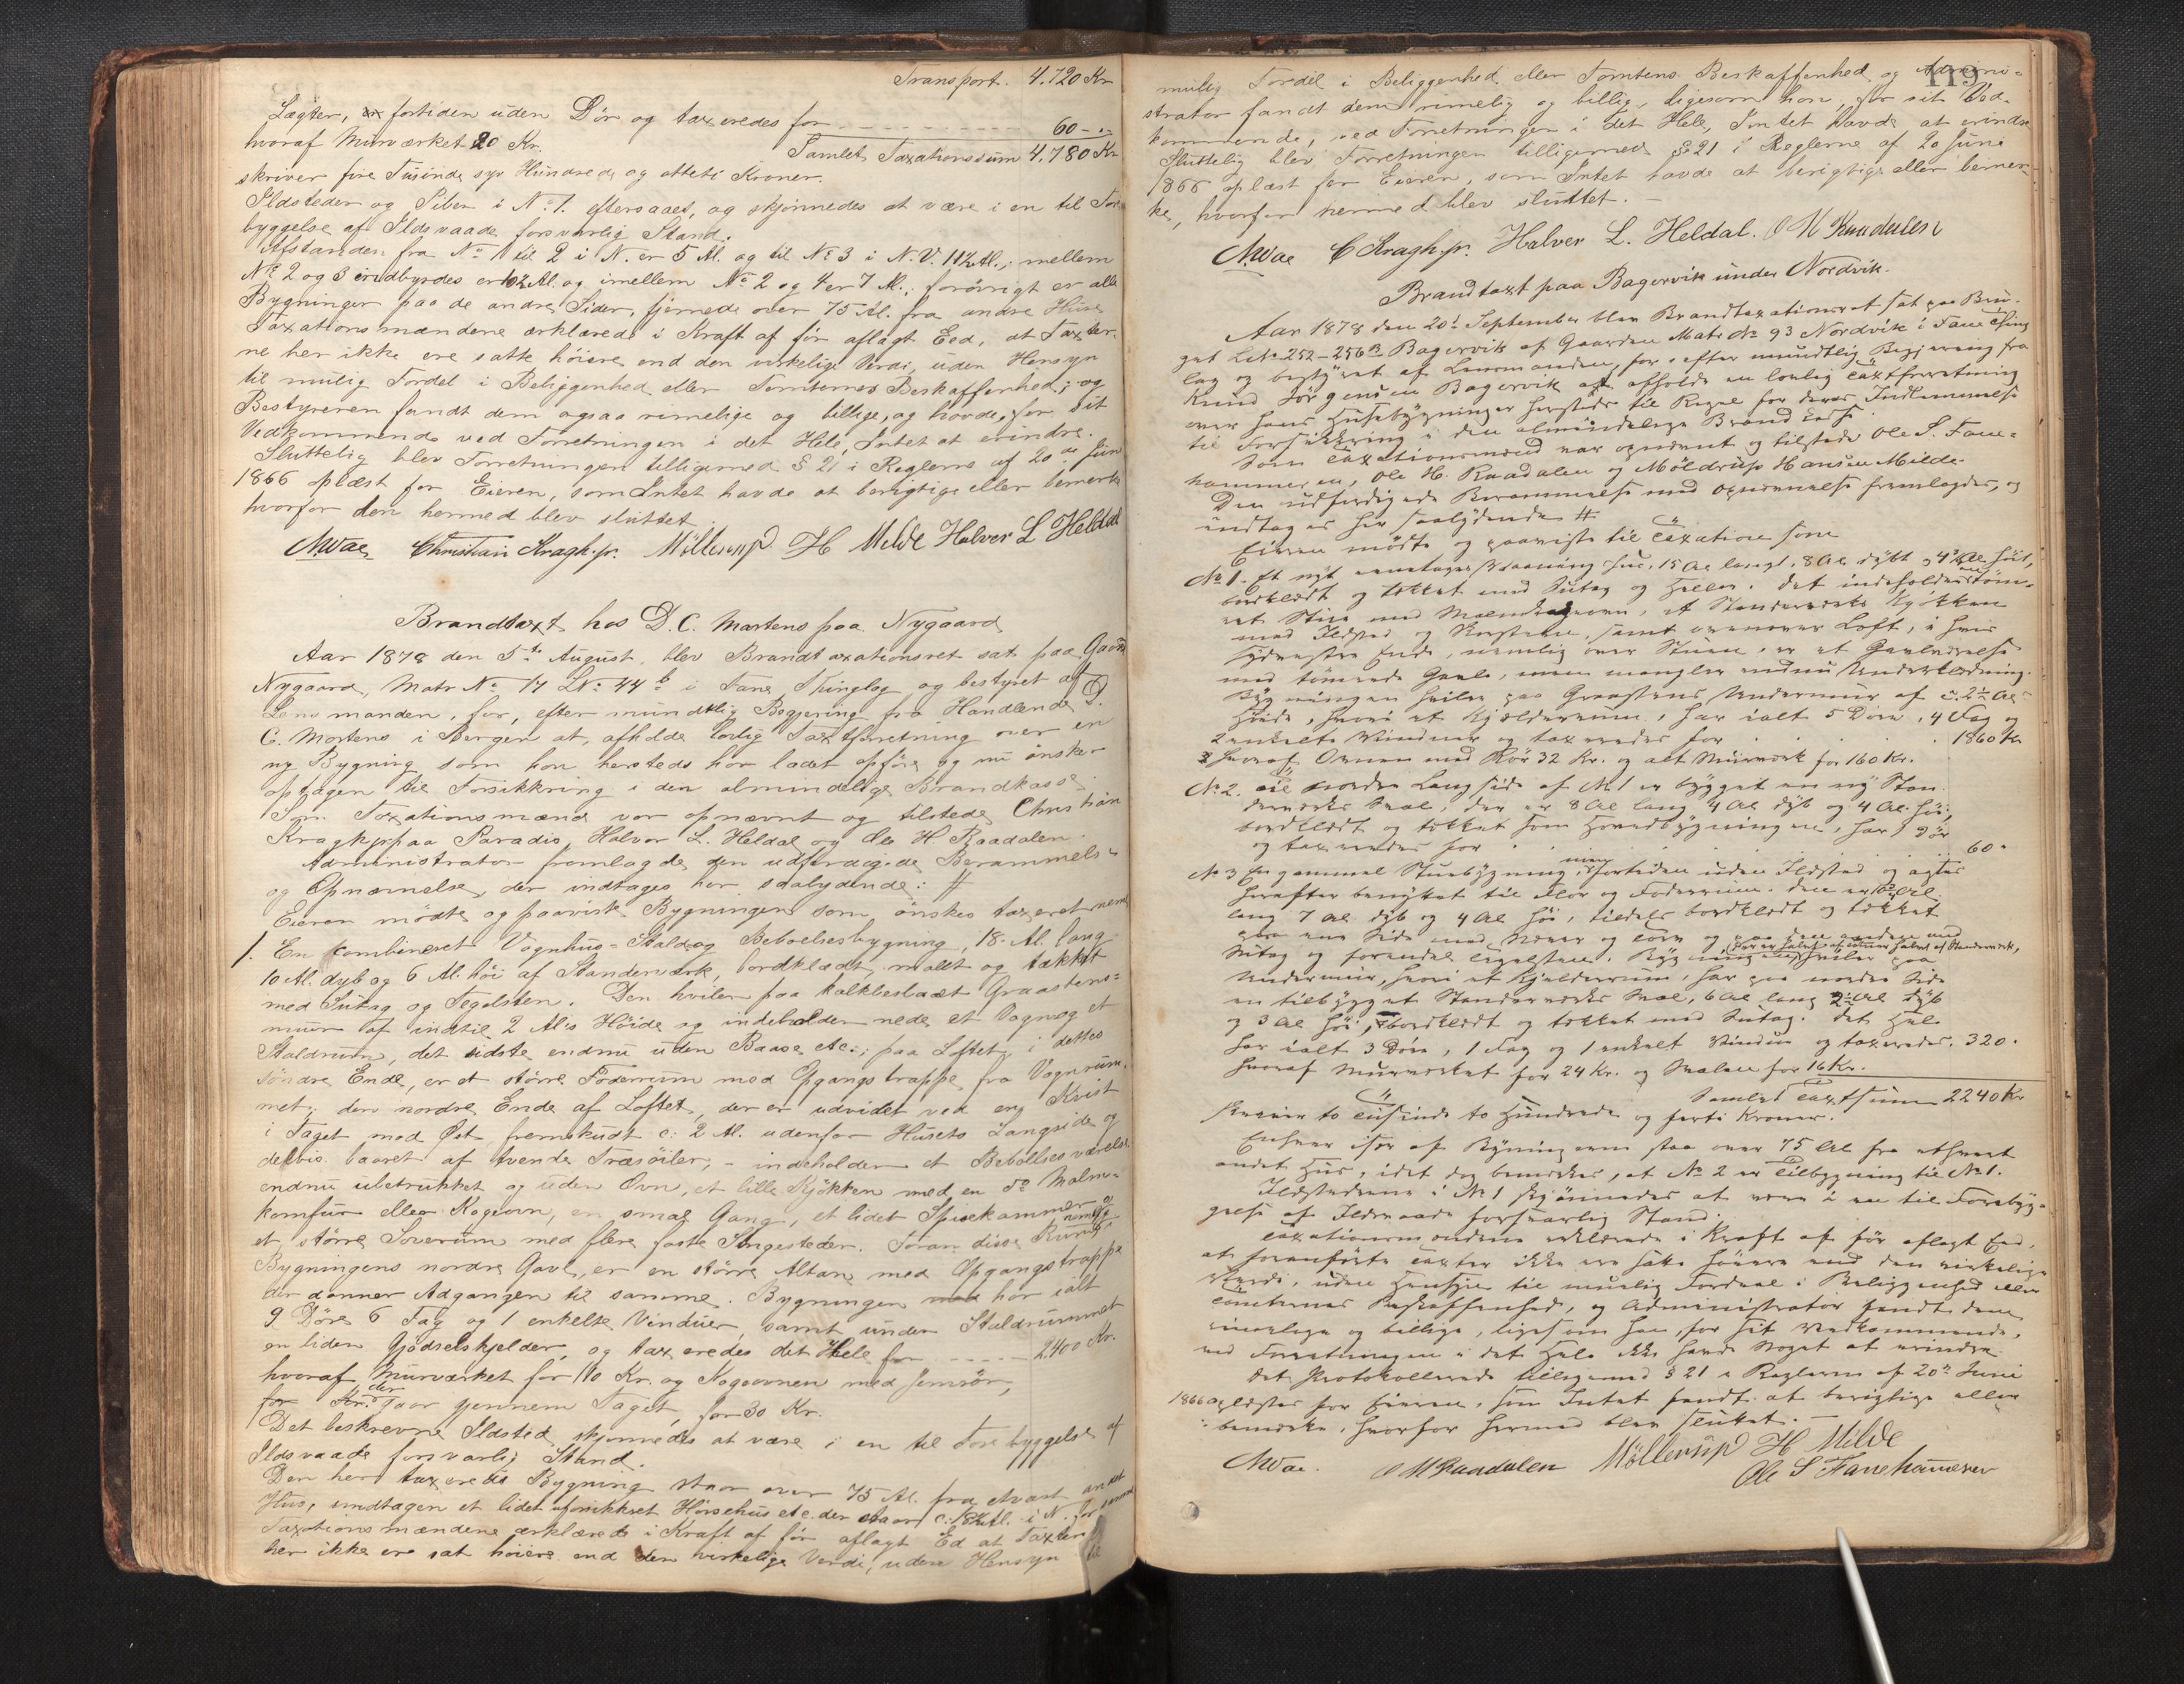 Transport. 4.720 Kr
Lægter, er fortiden uden Dör og taxeredes for 60 - "
hvoraf Murværket 20 Kr. Samlet Taxationssum 4.780 Kr
skriver fire Tusinde syv Hundrede og otteti Kroner.
Ildsteder og Piber i No 1. eftersaaes, og skjønnedes at være i en til Fore
byggelse af Ildsvaade forsvarlig Stand.
Afstanden fra No 1 til 2 i N. er 5 Al. og til No 3 i N.V. 11½ Al., mellem
No 2 og 3 indbyrdes er 10½ Al. og imellem No 2 og 4 er 7 Al.; forövrigt er alle
Bygninger paa de andre Sider, fjernede over 75 Al. fra andre Huse
Taxationsmændene erklærede i Kraft af før aflagt Eed, at Taxter-
ne her ikke ere satte höiere end den virkelige Verdi, uden Hensyn
til mulig Fordel i Beliggenhed eller Tomternes Beskaffenhed; og
Bestyreren fandt dem ogsaa rimelige og billige, og havde, for sit
Vedkommende ved Forretningen i det Hele, Intet at erindre.
Sluttelig blev Forretningen tilligemed § 21 i Reglerne af 20de Juni
1866 oplæst for Eieren, som Intet havde at berigtige eller bemerke
hvorfor den hermed blev sluttet
Christian Kragh. jr. Møllerup H Milde Halver L Heldal
Brandtaxt hos D. C. Martens paa Nygaard
Aar 1878 den 5te August, blev Brandtaxationsret sat paa Gaard
Nygaard, Matr No 14 LNo 44 b i Fane Thinglag og bestyret af
Lensmanden, for, efter mundtlig Begjering fra Handlende D.
C. Martens i Bergen at, afholde lovlig Taxtforretning over en
ny Bygning som han hersteds har ladet opføre og nu ønsker
optagen til Forsikkring i den almindelige Brandkasse.
Som Taxationsmænd var opnævnt og tilstede Christian
Kragh jr paa Paradis, Halvor L. Heldal og Ole H. Raadalen.
Administrator fremlagde den udfærdigede Berammelse
og Opnævnelse, der indtages her saalydende: #
Eieren mödte og paaviste Bygningen som ønskes taxeret nem
1. En combineret Vognhus- Stald og Beboelsesbygning, 18. Al. lang
10 Al. dyb og 6 Al. höi af Standerværk, bordklædt, malet og tækket
med Sutag og Tegelsten. Den hviler paa kalkbeslaaet Graastens-
muur af indtil 2 Al's Höide og indeholder nede, et Vognog et
Staldrum, det sidste endnu uden Baase etc:; paa Loftet, i dettes
söndre Ende, er et större Foderrum med Opgangstrappe fra Vognrum-
met; den nordre Ende af Loftet, der er udvidet ved en Kvist
i Taget mod Öst, fremskudt c: 2 Al. udenfor Husets Langside og
delvis baaret af tvende Træsöiler, - indeholder et Beboelsesværelse
endnu ubetrukket og uden Ovn, et lille Kjökken med en do Malm-
komfur eller Kogeovn, en smal Gang, et lidet Spisekammer og
et större Soverum med flere faste Sengesteder. Foran disse Rum
Bygningens nordre Gavl, er en större Altan med Opgangstrappe
der danner Adgangen til samme. Bygningen har ialt
9 Döre 6 Fag og 1 enkelte Vinduer, samt under Staldrummet
en liden Gjödselskjelder, og taxeredes det Hele for 2400 Kr.
hvoraf Murværket for 110 Kr. og Kogeovnen med Jernrör,
der gaar gjennem Taget, for 30 Kr.
Det beskrevne Ildsted skjønnedes at være i en til Forebyggelse af
Ildsvaade forsvarlig Stand.
Den her taxerede Bygning staar over 75 Al. fra ethvert andet
Hus, undtagen et lidet uforsikkret Hönsehus etc. der staar c: 18½ Al. i N. for samme
Taxationsmændene erklærede i Kraft af før aflagt Ed at Taxten
her ikke ere sat höiere end den virkelige Verdi, uden Hensyn til
119
mulig Fordel i Beliggenhed eller Tomtens Beskaffenhed og Admini-
strator fandt dem rimelig og billig, ligesom han, for sit Ved-
kommende, ved Forretningen i det Hele, Intet havde at erindre
Sluttelig blev Forretningen tilligemed § 21 i Reglerne af 20 Juni
1866 oplæst for Eieren, som Intet havde at berigtige eller bemer-
ke, hvorfor hermed blev sluttet. -
C Kragh jr. Halver L. Heldal. O H Raadalen
Brandtaxt paa Bagervik under Nordvik.
Aar 1878 den 20de September blev Brandtaxationsret sat paa Bru-
get LNo 252-256 B Bagervik af Gaarden Matr No 93 Nordvik i Fane Thing
lag og bestyret af Lensmanden, for, efter mundtlig Begjæring fra
Knud Jörgensen Bagervik at afholde en lovlig Taxtforretning
over hans Husebygninger hersteds til Regel for deres Indlemmelse
til Forsikkring i den almindelige Brandkasse.
Som Taxationsmænd var opnævnt og tilstede Ole S. Fane-
hammeren, Ole H. Raadalen og Möldrup Hansen Milde.
Den udfærdigede Berammelse med Opnævnelse fremlagdes, og
indtages her saalydende #
Eieren mödte og paaviste til Taxation som
No 1. Et nyt eenetages Vaaning hus, 15 Al langt, 8 Al dybt og 4¾ Al höit,
bordklædt og tækket med Sutag og Heller. Det indeholder en töm-
ret Stue med Malmkogeovn, et Standerværks Kjökken
med Ildsted og Skorsteen, samt ovenover Loft, i hvis
sydvestre Ende, nemlig over Stuen, er et Gavlværelse
med tömrede Gavle, men mangler endnu Underklædning.
Bygningen hviler paa Graasteens Undermur af c. 2½ Al
Höide, hvori et Kjælderrum, har ialt 5 Döre, 4 Fag og
2 enkelte Vinduer og taxeredes for 1860 Kr
hvoraf Ovnen med Rör 32 Kr. og alt Murværk for 160 Kr.
No 2. Til nordre Langside af No 1 er bygget en ny Stan
derværks Sval, der er 8 Al lang 4 Al dyb og 4 Al. höi,
bordklædt og tækket som Hovedbygningen, har 1 Dör
og taxeredes for 60 "
No 3 En gammel Stuebygning, fortiden uden Ildsted og agtes
herefter benyttet til Flor og Foderrum. Den er 10¾ Al
lang 7 Al dyb og 4 Al höi, tildels bordklædt og tækket
paa ene Side med Næver og Torv og paa den anden med
Sutag og forendel Tegelsteen. Bygningen, der er halvt af Tömmer halvt af Standerværk, hviler paa
Undermur, hvori et Kjelderrum, har paa nordre Side
en tilbygget Standerværks Sval, 6 Al lang 2½ Al dyb
og 3 Al höi, bordklædt og tækket med Sutag. Det Hele
har ialt 3 Döre, 1 Fag og 1 enkelt Vindue og taxeredes. 320 "
hvoraf Murværket for 24 Kr. og Svalen for 16 Kr.
Samlet Taxtsum 2240 Kr
skriver to Tusinde to Hundrede og forti Kroner.
Enhver især af Bygningerne staa over 75 Al fra ethvert
andet Hus, idet dog bemerkes, at No 2 er Tilbygning til No 1.
Ildstederne i No 1 skjönnedes at være i en til Forebyg-
gelse af Ildsvaade forsvarlig Stand.
Taxationsmændene erklærede i Kraft af för aflagt Eed,
at foranförte Taxter ikke ere satte höiere end den virkelige
Værdi, uden Hensyn til muelig Fordeel i Beliggenhed eller
Tomternes Beskaffenhed, og Administrator fandt dem
rimelige og billige, ligesom han, for sit Vedkommende,
ved Forretningen i det Hele ikke havde Noget at erindre.
Det Protokollerede tilligemed § 21 i Reglerne af 20de Juni
1866 oplæstes for Eieren, som Intet fandt at berigtige eller
bemerke, hvorfor hermed blev sluttet. -
O H Raadalen Møllerup H Milde
Ole S Fanehameren